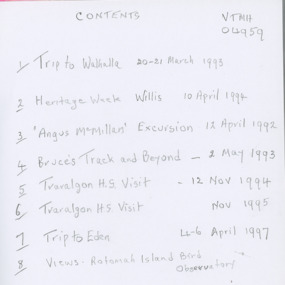 CONTENTS
VTMH
04959
1 Trip to Walhalla 20-21 March 1993
2 Heritage Week Willis 10 April 1994
3 'Angus McMillan' Excursion 12 April 1992
4 Bruces Track and Beyond - 2 May 1993
5 Traralgon H.S. Visit - 12 Nov 1994
6 Traralgon H.S. Visit Nov 1995
7 Trip to Eden 4-6 April 1997
8 Views - Rotamah Island Bird
Observatory